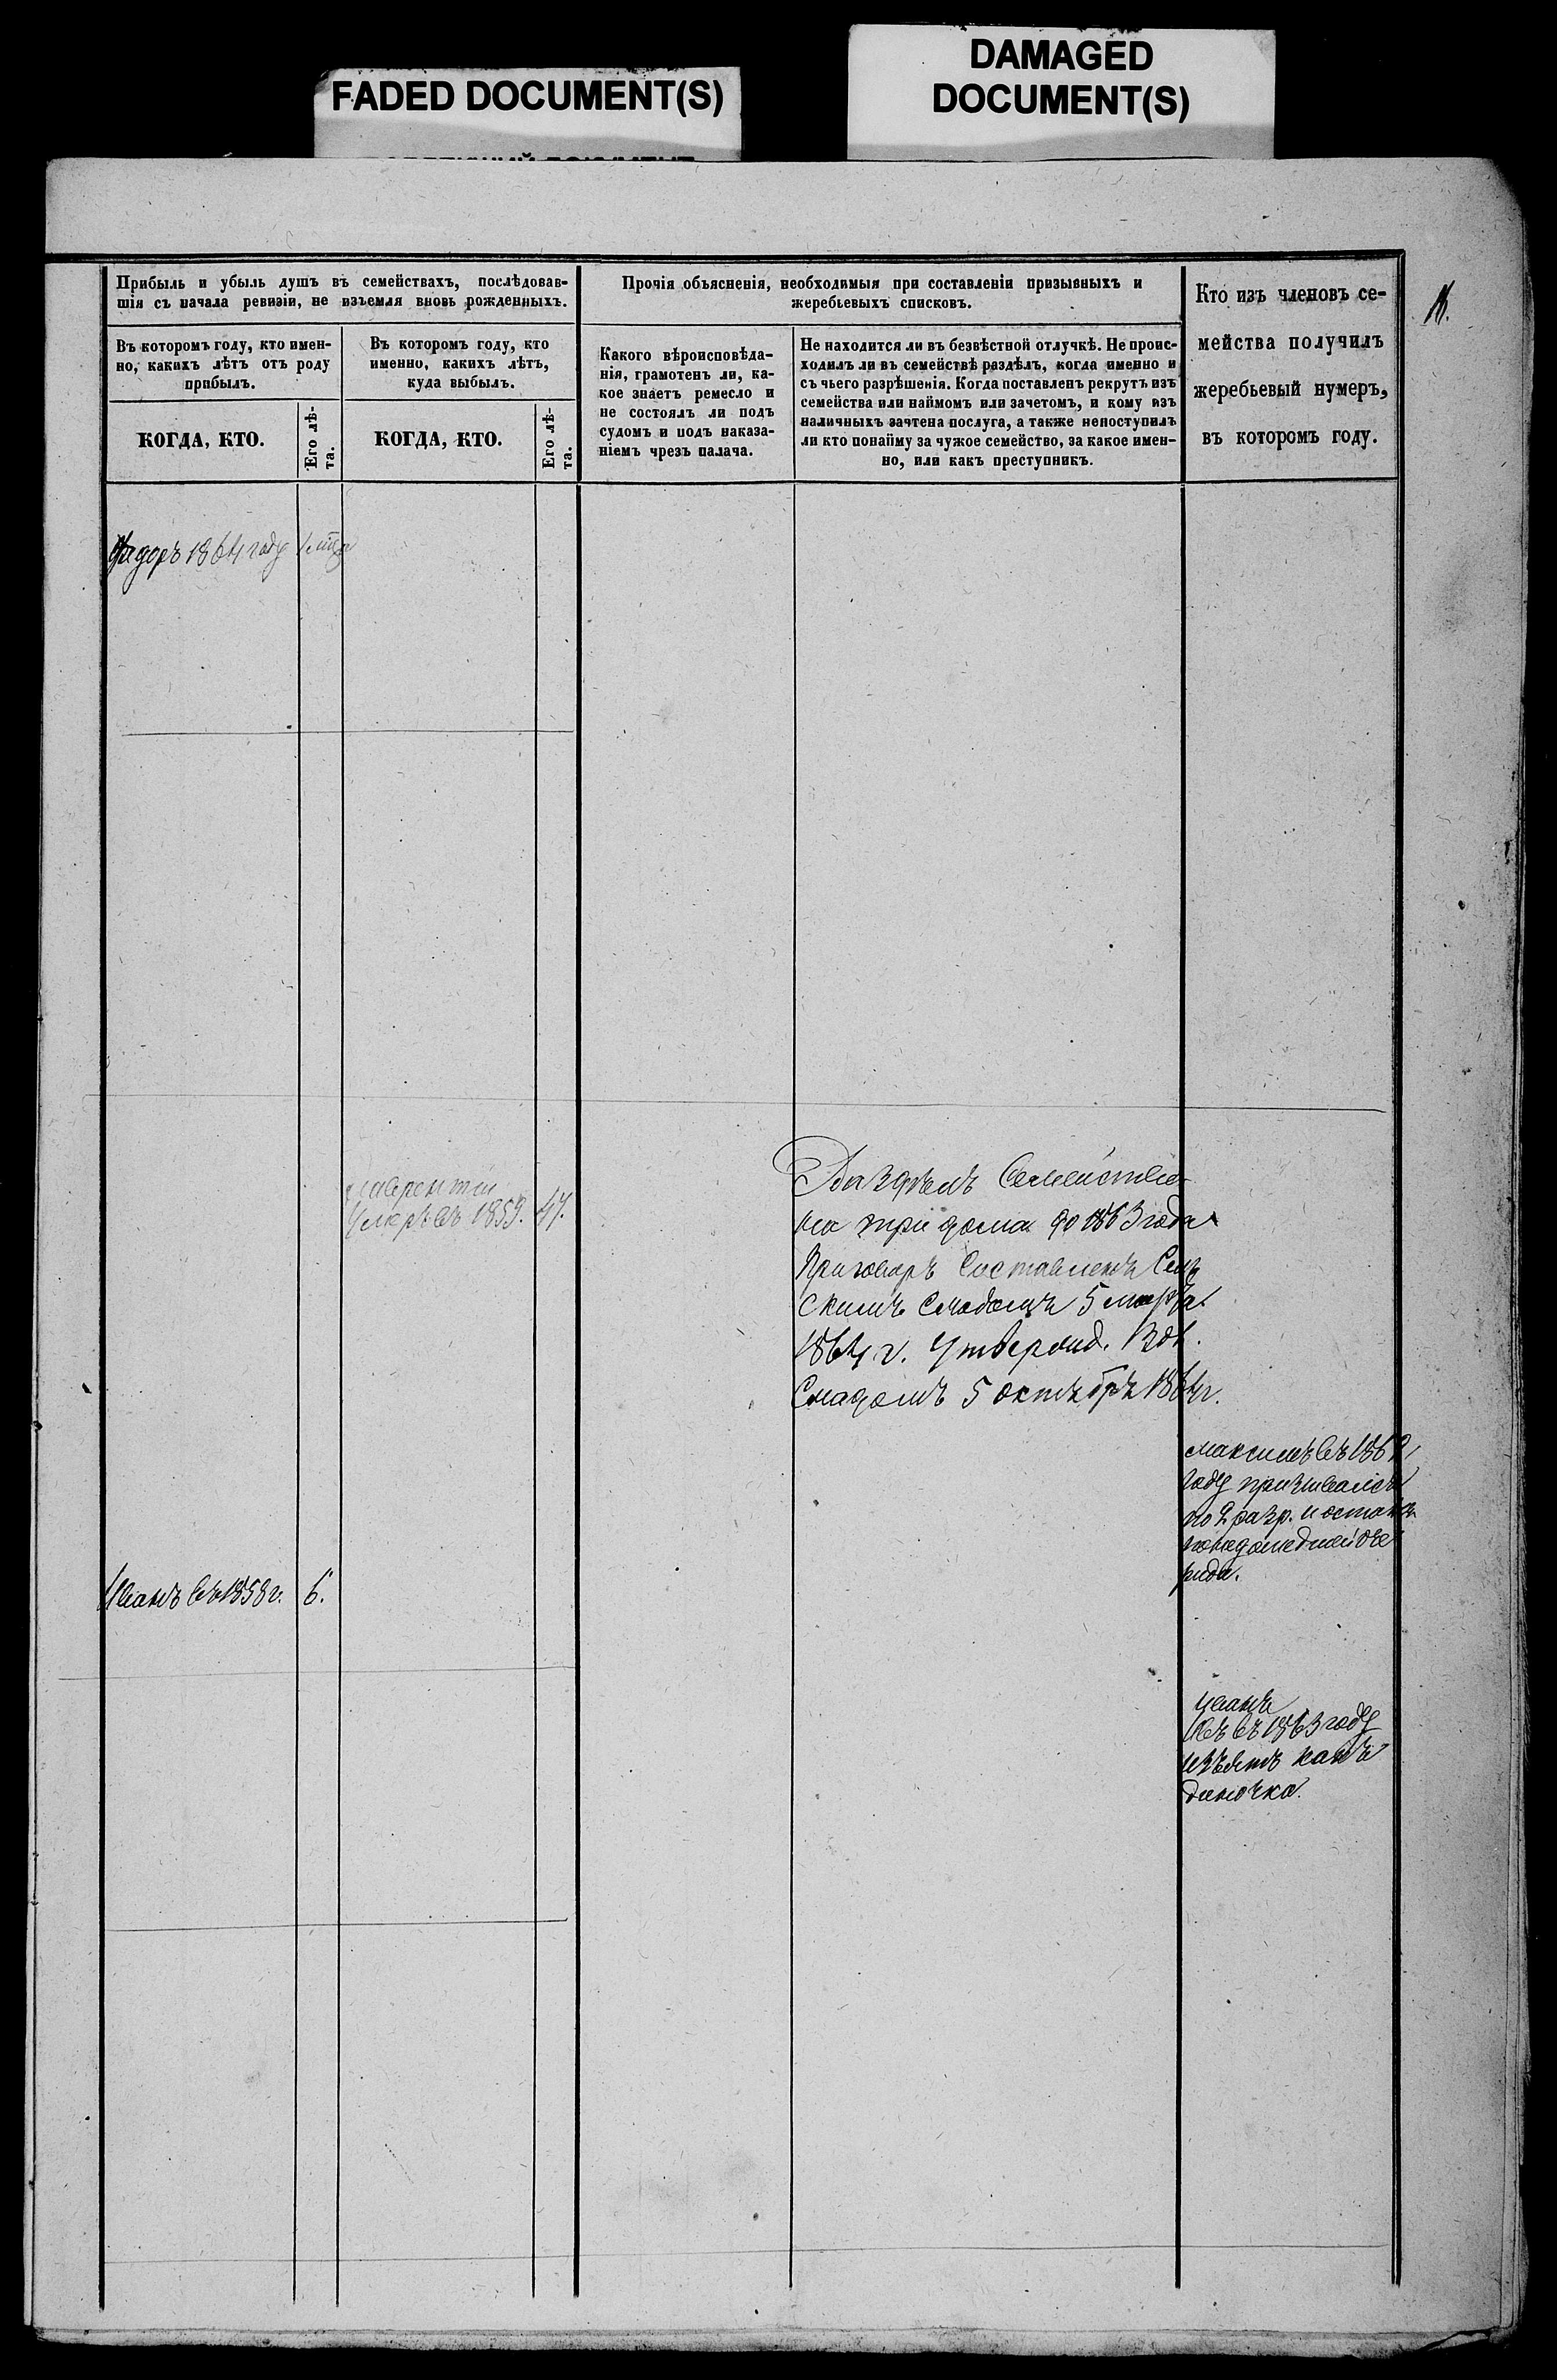 FADED DOCUMENT(S)
DAMAGED
DOCUMENT(S)
Прибыль и убыль душъ въ семействахъ, послѣдовав-
шія съ начала ревизіи, не изъемля вновь рожденныхъ.
Въ которомъ году, кто имен-
но, какихъ лѣтъ отъ роду
прибылъ.
Въ которомъ году, кто
именно, какихъ лѣтъ,
куда выбылъ.
КОГДА, КТО.
Его лѣ-
та.
КОГДА, КТО.
Его лѣ-
та.
Прочія объясненія, необходимыя при составленіи призывныхъ и
жеребьевыхъ списковъ.
Какого вѣроисповѣда-
нія, грамотенъ ли, ка-
кое знаетъ ремесло и
не состоялъ ли подъ
судомъ и подъ наказа-
ніемъ чрезъ палача.
Не находится ли въ безвѣстной отлучкѣ. Не проис-
ходилъ ли въ семействѣ раздѣлъ, когда именно и
съ чьего разрѣшенія. Когда поставленъ рекрутъ изъ
семейства или наймомъ или зачетомъ, и кому изъ
наличныхъ зачтена послуга, а также непоступилъ
ли кто понайму за чужое семейство, за какое имен-
но, или какъ преступникъ.
Кто изъ членовъ се-
мейства получилъ
жеребьевый нумеръ,
въ которомъ году.
1864 году
Лаврентій
Умеръ въ 1859. 47.
Раздѣлъ Семейства
на три дома до 1863 года
Приговоръ Составленъ Сель
скимъ Сходомъ 5 марта
1864 г. Утвержд. Вол.
Сходомъ 5 октября 1864 г.
Максимъ въ 186
году призывался
по 2 разр. и остался
Иванъ въ 1858 г. 6.
Иванъ
въ 1863 году
изъятъ какъ
диночка.